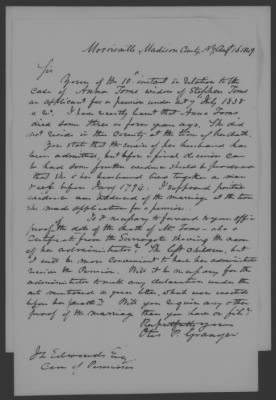 Morrisville, Madison County N.Y. Augt 16 1849
Sir
Yours of the 10th instant in relation to the
case of Anna Toms widow of Stephen Toms
an applicant for a pension under act 7 July 1838
is I have recently learnt that Anna Toms
died some three or four years ago. She did
not reside in this County at the time of her death.
You state that the service of her husband has
been admitted, but before a final decision can
be had some further evidence should be furnished
that she & her husband lived together as man
& wife before Jany 1794. I supposed positive
evidence was adduced of the marriage at the time
she made application for a pension.
Is it necessary to forward to your office
proof of the date of the death of Mrs Toms - also a
Certificate from the Surrogate shewing the name
of her administrator? She left children, but
it will be more convenient to have her administrator
receive the Pension. Will it be necessary for the
administrator to make any declaration under the
act
before her death? Will you require any other
proof of the marriage than you have on file?
Respectfully yours
Otis P. Granger
J L Edwards Esq
Com of Pensions